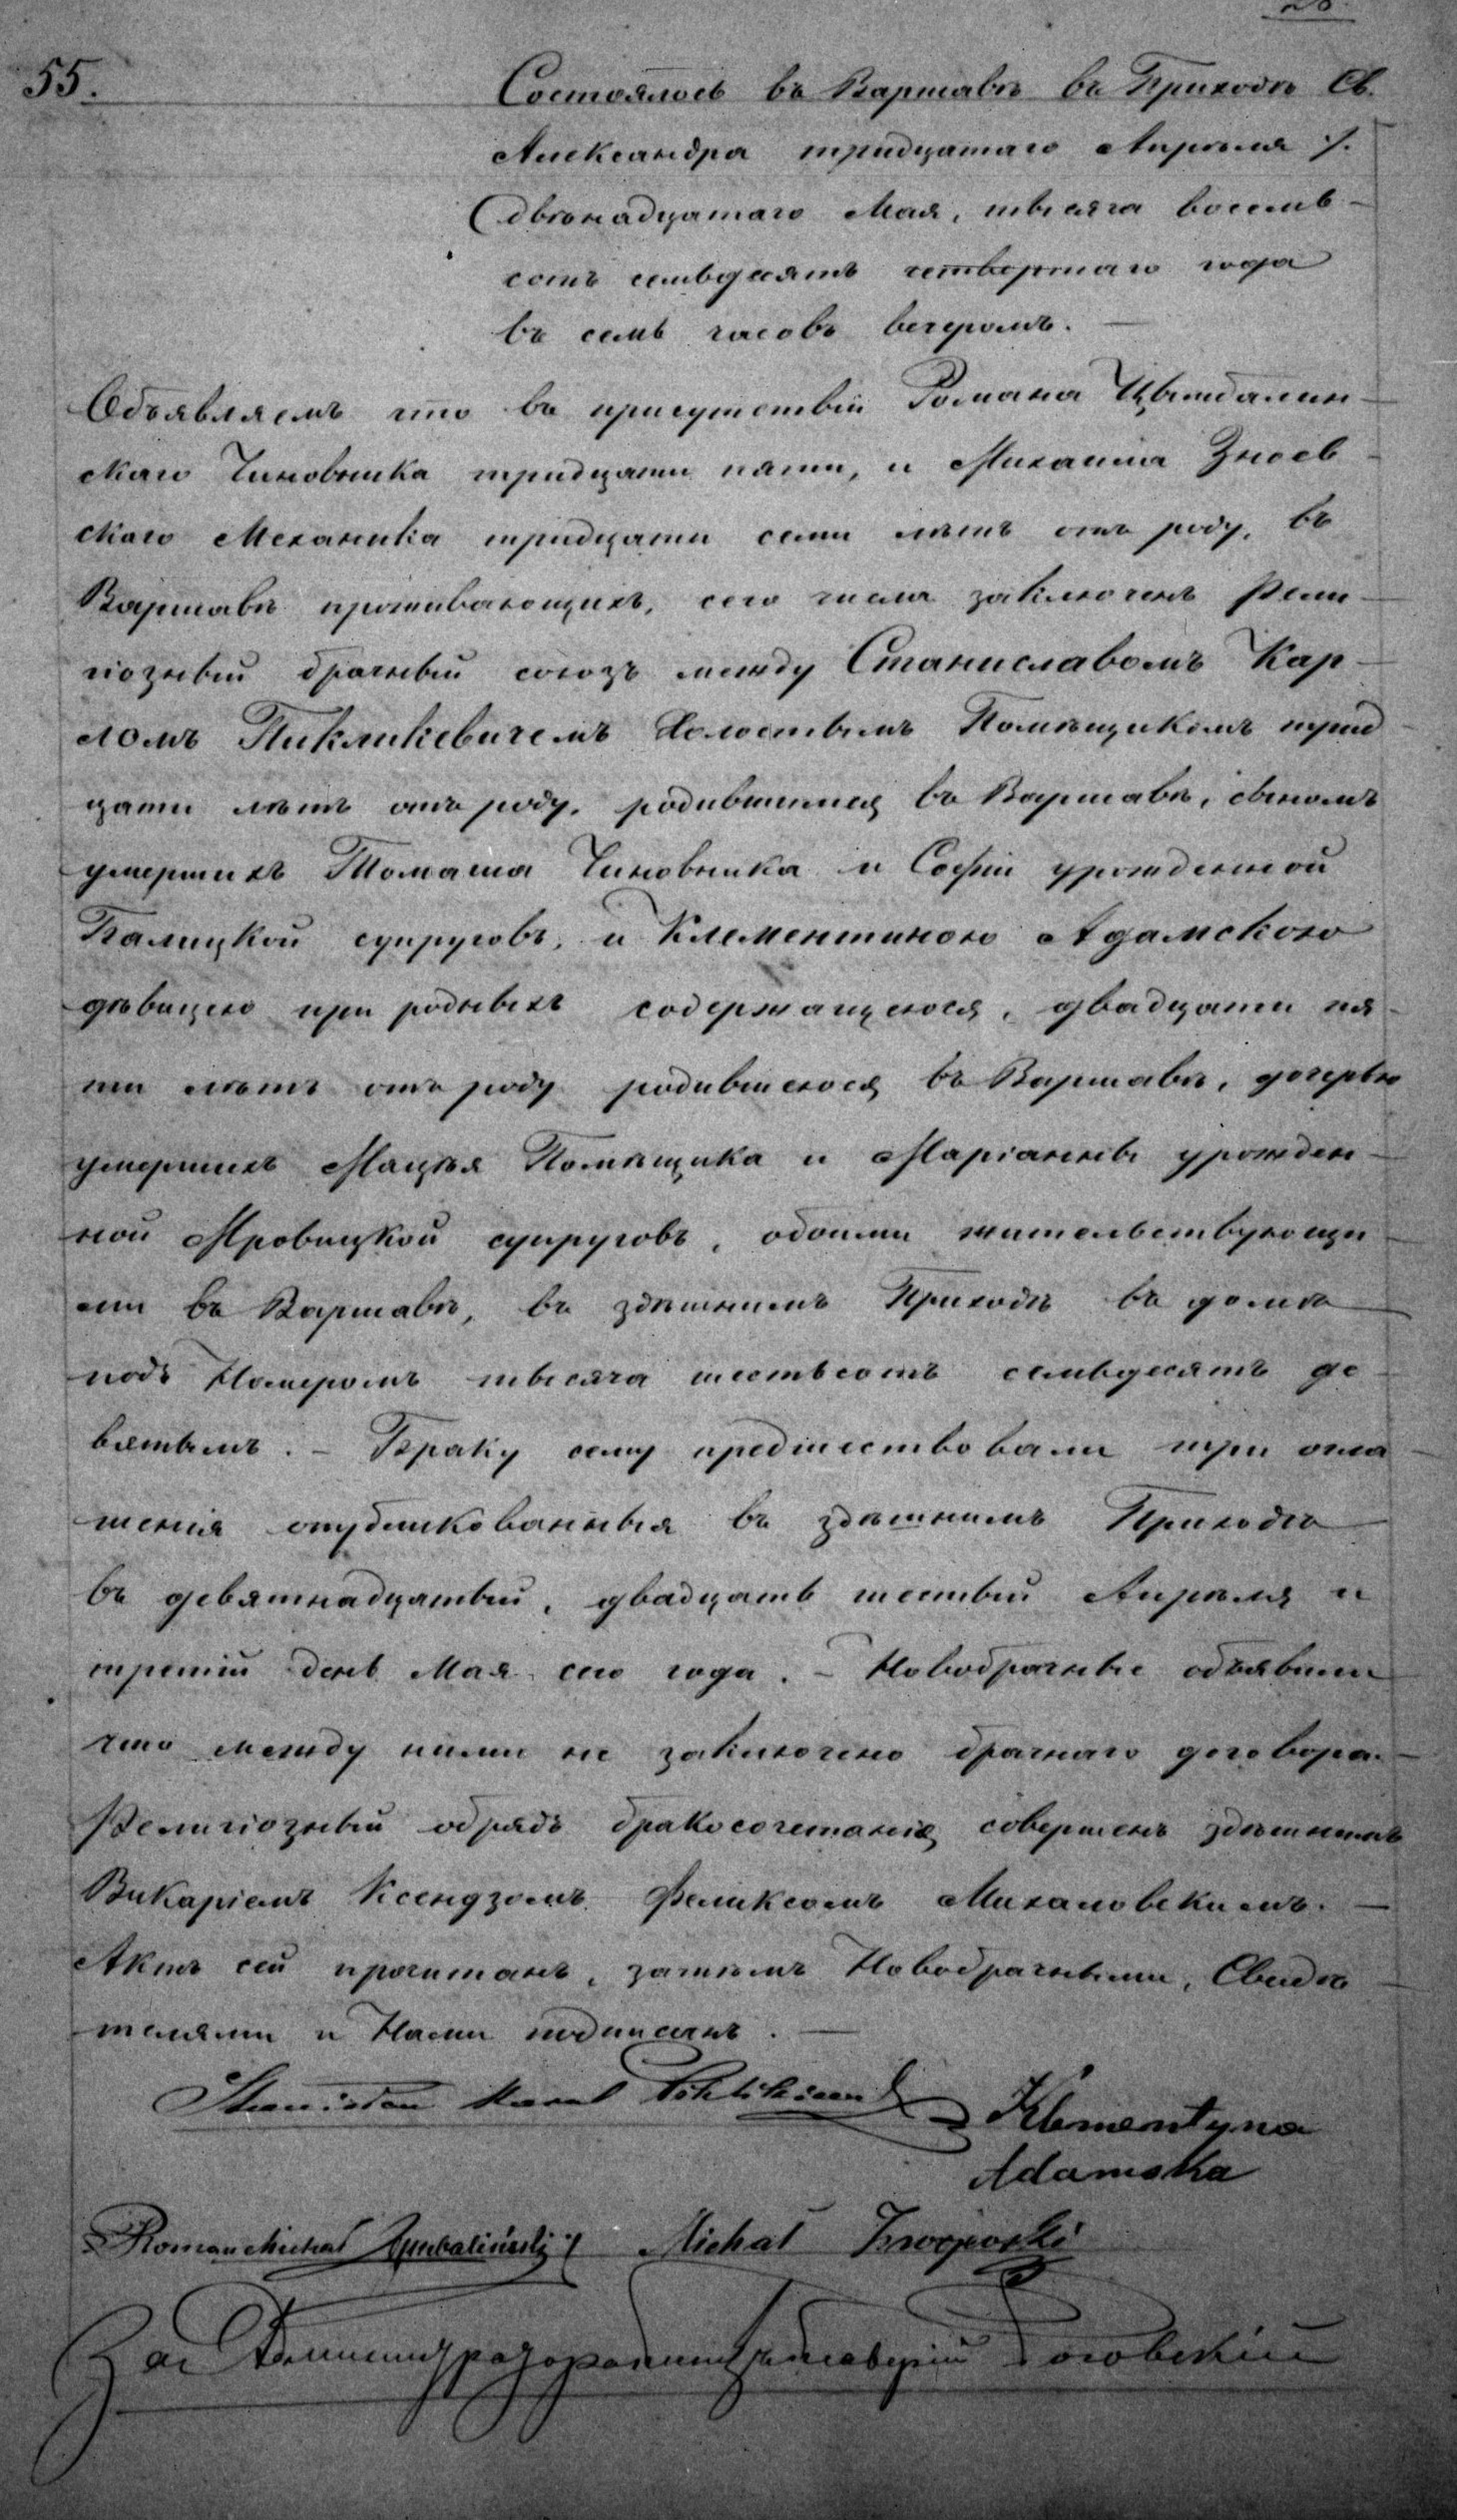 55.
Состоялось въ Варшавѣ въ Приходѣ Св.
Александра тридцатаго Апрѣля /.
(двѣнадцатаго Мая, тысяча восемь-
сотъ семьдесятъ четвертаго года
въ семь часовъ вечеромъ. —
Объявляемъ что въ присутствіи Романа Цымбалин-
скаго Чиновника тридцати пяти, и Михаила Зноев-
скаго Механика тридцати семи лѣтъ отъ роду, въ
Варшавѣ проживающихъ, сего числа заключенъ рели-
гіозный брачный союзъ между Станиславомъ Кар-
ломъ Пикликевичемъ Холостымъ Помѣщикомъ трид-
цати лѣтъ отъ роду, родившимся въ Варшавѣ, сыномъ
умершихъ Томаша Чиновника и Софіи урожденной
Балицкой супруговъ, и Клементиною Адамскою
дѣвицею при родныхъ содержащеюся, двадцати пя-
ти лѣтъ отъ роду родившеюся въ Варшавѣ, дочерью
умершихъ Мацѣя Помѣщика и Маріанны урожден-
ной Мровицкой супруговъ, обоими жительствующи-
ми въ Варшавѣ, въ здѣшнимъ Приходѣ въ домѣ
подъ Номеромъ тысяча шестьсотъ семьдесятъ де-
вятымъ. – Браку сему предшествовали три огла-
шенія опубликованныя въ здѣшнимъ Приходѣ
въ девятнадцатый, двадцать шестый Апрѣля и
третій день Мая сего года. – Новобрачные объявили
что между ними не заключено брачнаго договора. –
Религіозный обрядъ бракосочетанія совершенъ здѣшнимъ
Викаріемъ Ксендзомъ Феликсомъ Михаловскимъ. —
Актъ сей прочитанъ, затѣмъ Новобрачными, Свидѣ-
телями и Нами подписанъ. —
Stanisław Karol Piklikiewicz
Klementyna
Adamska
Roman Michał Cymbaliński Michał Znojewski
За Администратора